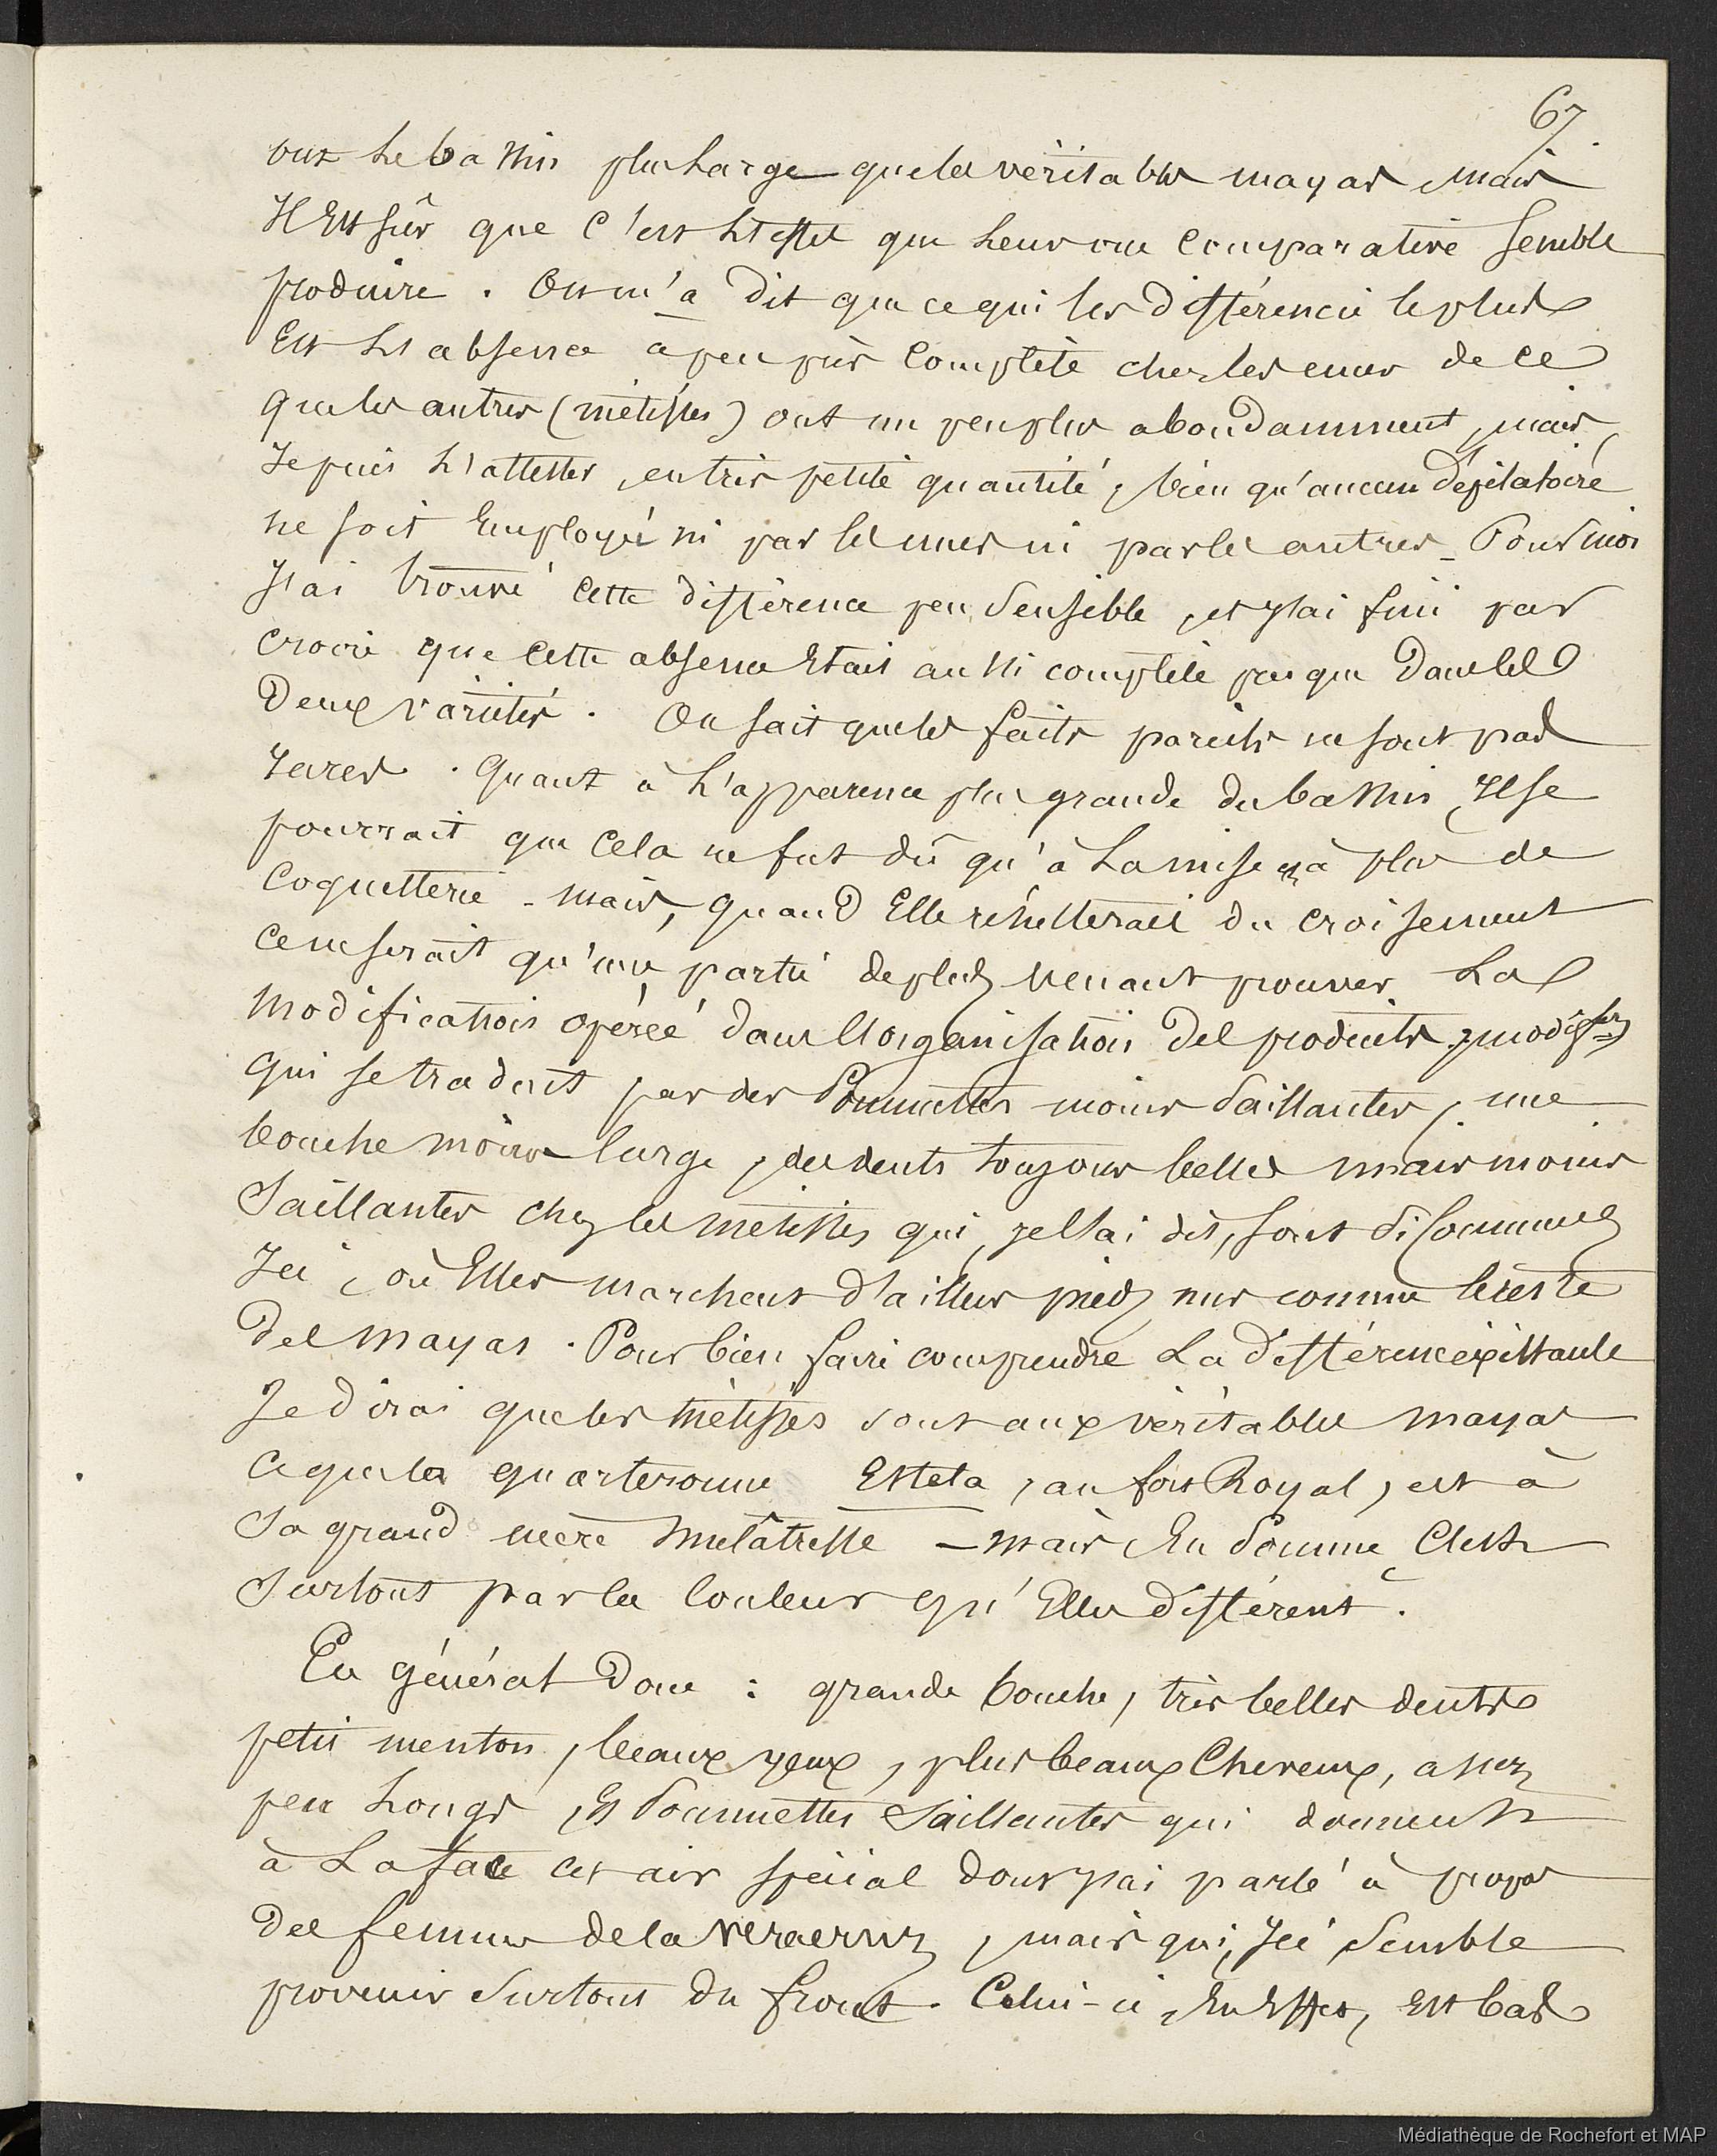 67.
ont le bassin plus large que les véritables mayas mais
Il Est sûr que c'est l'effet que leur vue comparative semble
produire. On m'a dit que ce qui les différencie le plus
Est l'absence à peu près complète chez les unes de ce
que les autres (métisses) ont un peu plus abondamment, mais,
Je puis l'attester, en très petite quantité, bien qu'aucun dépilatoire
ne soit Employé ni par les unes ni par les autres – Pour moi
J'ai trouvé cette différence peu sensible, et j'ai fini par
croire que cette absence Etait aussi complète presque dans les
Deux variétés. On sait que les faits pareils ne sont pas
rares. Quant à l'apparence plus grande du bassin, Il se
pourrait que cela ne fut dû qu'à la mise et à plus de
Coquetterie – mais, quand Elle résulterait du croisement
ce ne serait qu'une partie de plus venant prouver La
modification opérée dans l'organisation des produits, modifon
qui se traduit par des Pommettes moins saillantes, une
bouche moins large, des dents toujours belles mais moins
saillantes chez les métisses qui, je l'ai dit, sont si communes
Ici, où Elles marchent d'ailleurs pieds nus comme le reste
Des mayas. Pour bien faire comprendre La différence existante
Je dirai que les métisses sont aux véritables mayas
ce que la quarteronne Estela, au fort Royal, est à
sa grand mère mulâtresse – mais En somme C'est
surtout par la couleur qu'Elles diffèrent.
En général Donc : grande bouche, très belles dents
petit menton, beaux yeux, plus beaux Cheveux, assez
peu longs, Et Pommettes saillantes qui donnent
à La face cet air spécial dont j'ai parlé à propos
Des femmes de la Veracruz, mais qui, Ici semble
provenir surtout du front. Celui-ci, En Effet, Est bas
Médiathèque de Rochefort et MAP